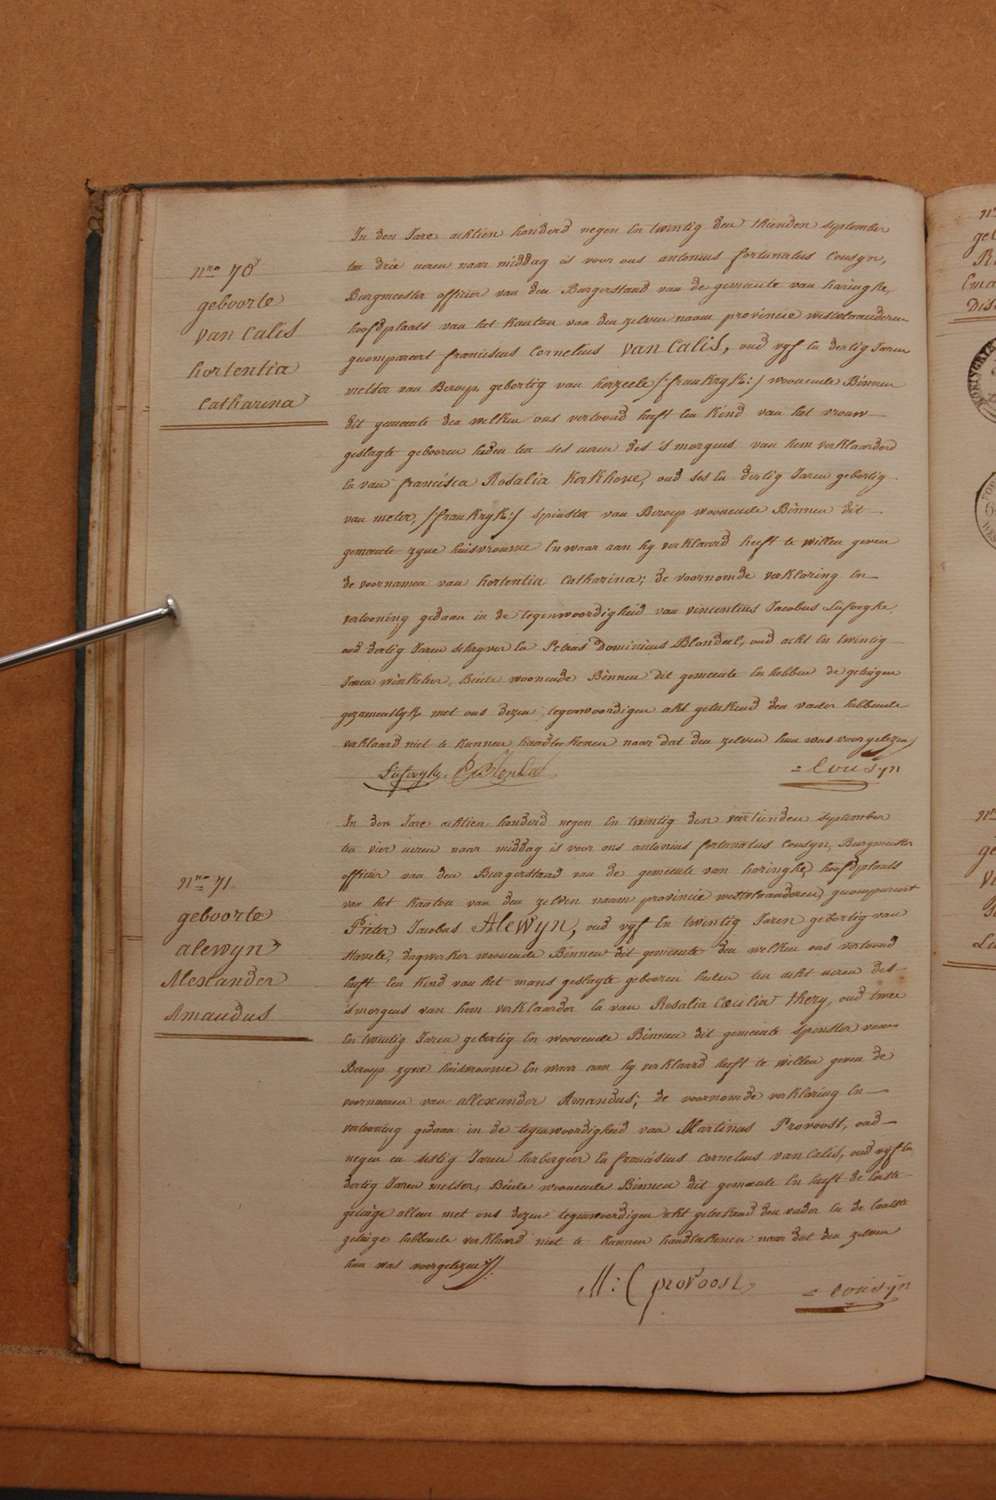 nro 70
geboorte
van Calis
hortentia
Catharina
In den Jare achtien honderd negen en twintig den thienden september
ten drie ueren naar middag is voor ons antonius fortunatus Cousyn,
Burgmeester officier van den Burgerstand van de gemeente van haringhe,
hoofdplaats van het Kanton van den zelven naam provincie westvlaanderen
gecompareert franciscus Cornelius van Calis, oud vyf en dertig Jaren
melder van Beroep, gebortig van herzeele /:frankryk:/ woonende Binnen
dit gemeente den welken ons vertoond heeft een kind van het vrouw
geslagte gebooren heden ten ses ueren des s'morgens van hem verklaarder
en van francisca Rosalia Kerkhove, oud ses en dertig Jaren gebortig
van meter, /:frankryk:/ spinster van Beroep woonende Binnen dit
gemeente zyne huisvrouwe en waar aan hy verklaard heeft te willen geven
de voornamen van hortentia Catharina; de voornomde verklaring en
vertooning gedaan in de tegenwoordigheid van vincentius Jacobus
oud dertig Jaren schryver en Petrus Dominicus Blondeel, oud acht en twintig
Jaren winkelier, Beede woonende Binnen dit gemeente en hebben de getuigen
gezamentlyk met ons dezen tegenwoordigen akt geteekend den vader hebbende
verklaard niet te kunnen handteekenen naar dat den zelven hun was voorgelezen
Cousyn
nro 71
geboorte
alewyn
Alexander
Amandus
In den Jare achtien honderd negen en twintig den veertienden september
ten vier ueren naar middag is voor ons antonius fortunatus Cousyn, Burgmeester
officier van den Burgerstand van de gemeente van haringhe, hoofdplaats
van het Kanton van den zelven naam provincie westvlaanderen, gecompareert
Pieter Jacobus Alewyn, oud vyf en twintig Jaren gebortig van
Stavele, dagwerker woonende Binnen dit gemeente den welken ons vertoond
heeft een kind van het mans geslagte gebooren heden ten acht ueren des
s'morgens van hem verklaarder en van Rosalia Cecilia thery, oud twee
en twintig Jaren gebortig en woonende Binnen dit gemeente spinster van
Beroep zyne huisvrouwe en waar aan hy verklaard heeft te willen geven de
voornamen van allexander Amandus; de voornomde verklaring en
vertooning gedaan in de tegenwoordigheid van Martinus Provoost, oud
negen en sestig Jaren herbergier en franciscus Cornelius van Calis, oud vyf en
dertig Jaren melder, Beede woonende Binnen dit gemeente en heeft de eerste
getuige alleen met ons dezen tegenwoordigen akt geteekend den vader en de laatste
getuige hebbende verklaard niet te kunnen handteekenen naar dat den zelven
hun was voorgelezen
M: C provoost
Cousyn